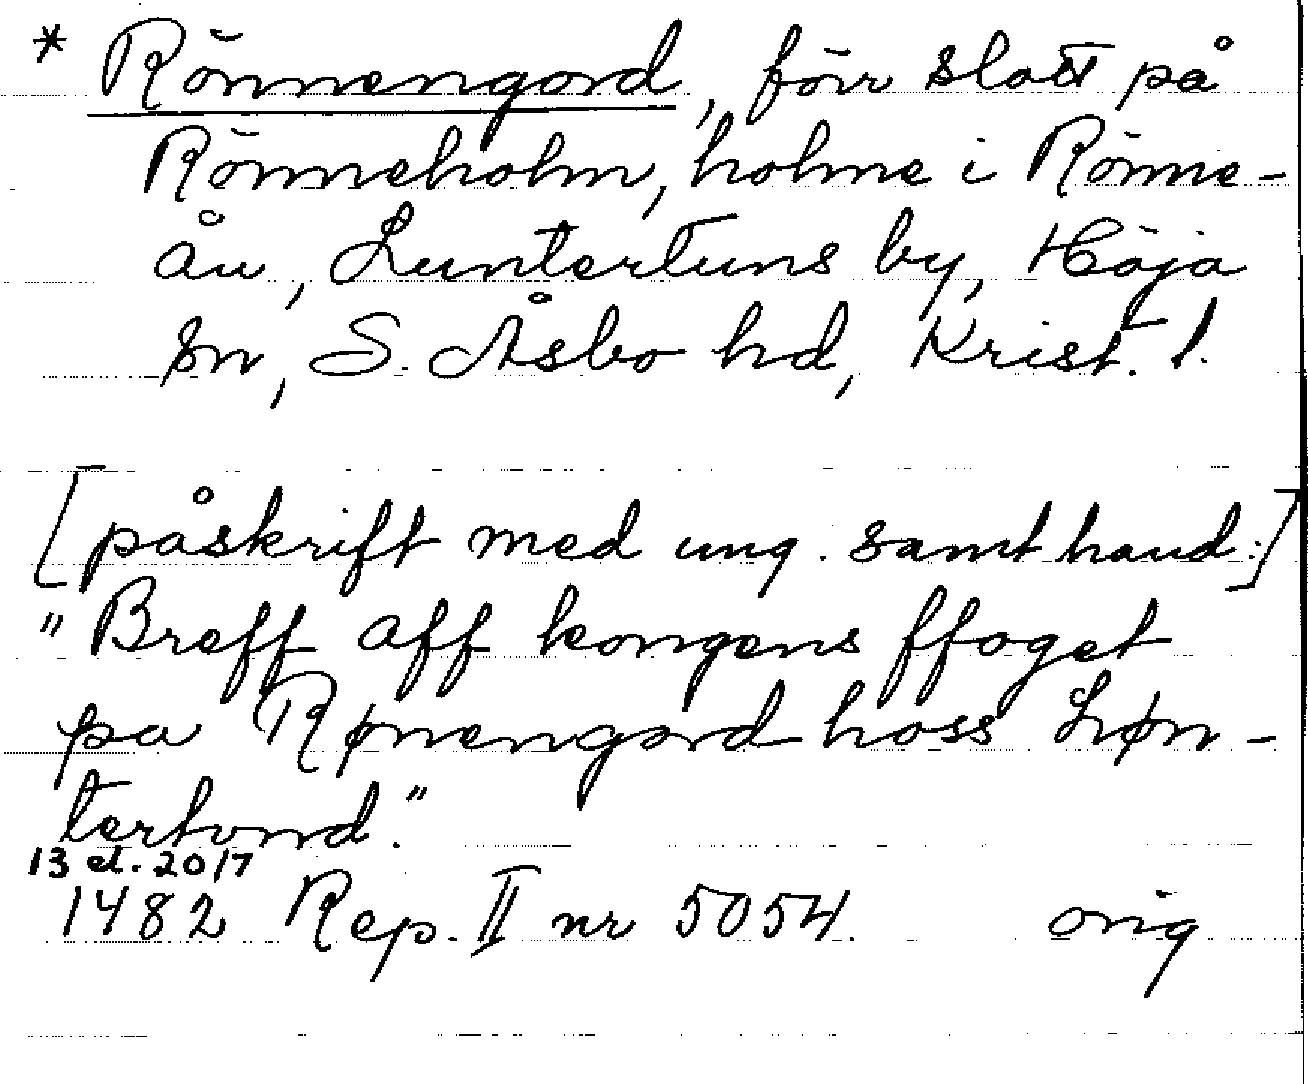 * Rönnengord, förr slott på
Rönneholm, holme i Rönne-
ån, Luntertuns by, Höja
sn, S. Åsbo hd, Krist. l.
[påskrift med ung. samt hand:]
"Breff aff kongens ffoget
pa Rønengord hoss Løn-
tertond."
13 el. 20/7
1482 Rep. II nr 5054. orig